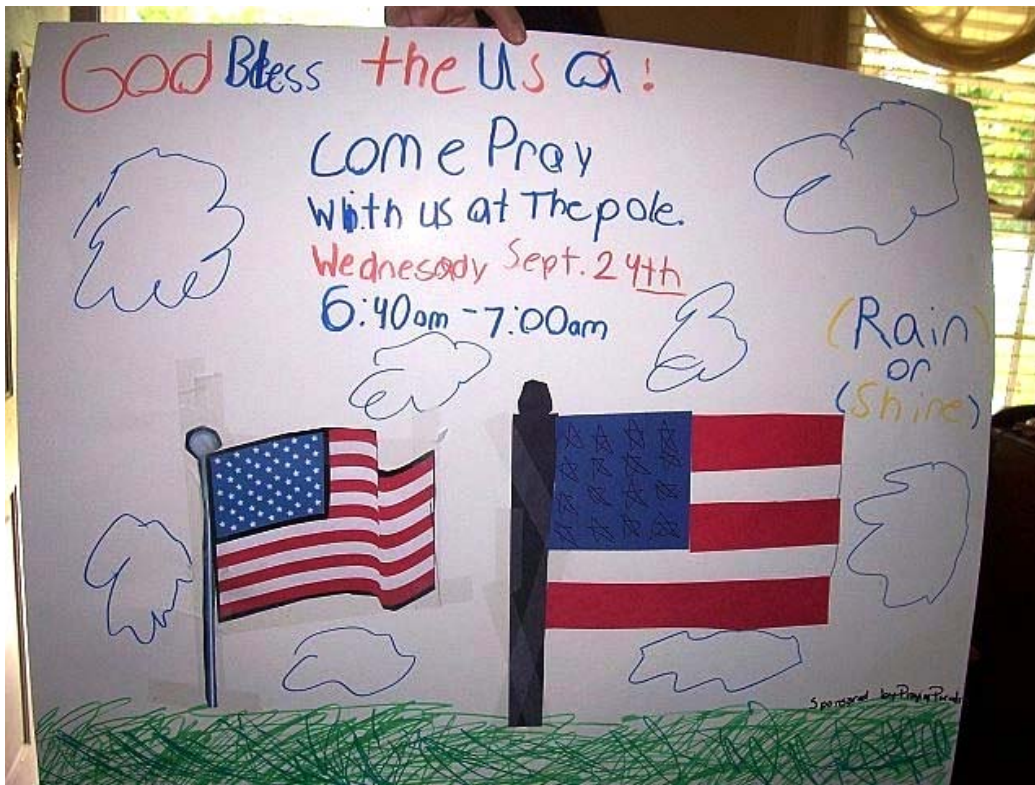 God Bless the Usa!
Come Pray
With us at The pole.
Wednesday Sept. 24th
6:40am - 7:00am
(Rain)
or
(Shine)
Sponsored by Praying